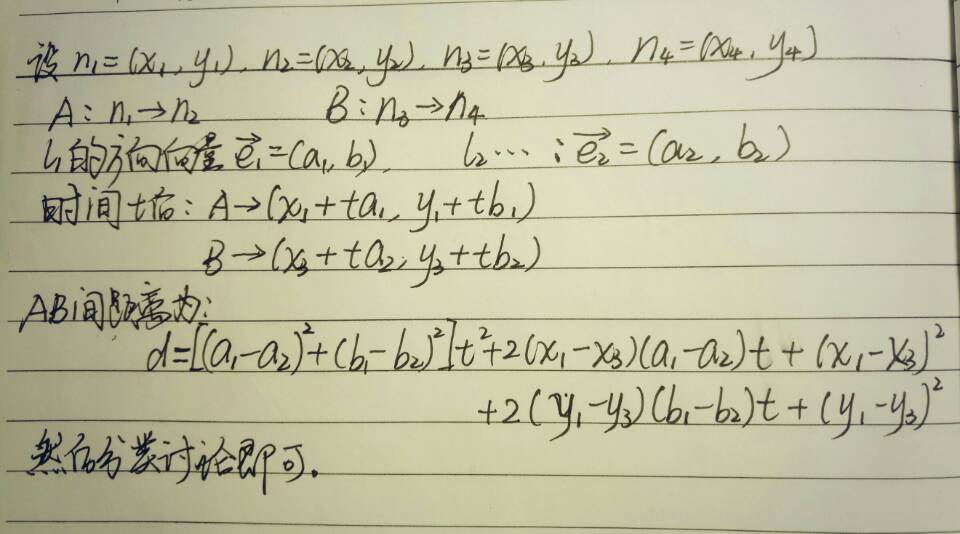 设 n₁=(x₁, y₁), n₂=(x₂, y₂), n₃=(x₃, y₃), n₄=(x₄, y₄)
A: n₁→n₂ B: n₃→n₄
l₁的方向向量 e₁⃗=(a₁, b₁), l₂⋯: e₂⃗=(a₂, b₂)
时间t后: A→(x₁+ta₁, y₁+tb₁)
B→(x₃+ta₂, y₃+tb₂)
AB间距离为:
d=[(a₁-a₂)²+(b₁-b₂)²]t²+2(x₁-x₃)(a₁-a₂)t+(x₁-x₃)²
+2(y₁-y₃)(b₁-b₂)t+(y₁-y₃)²
然后分类讨论即可.